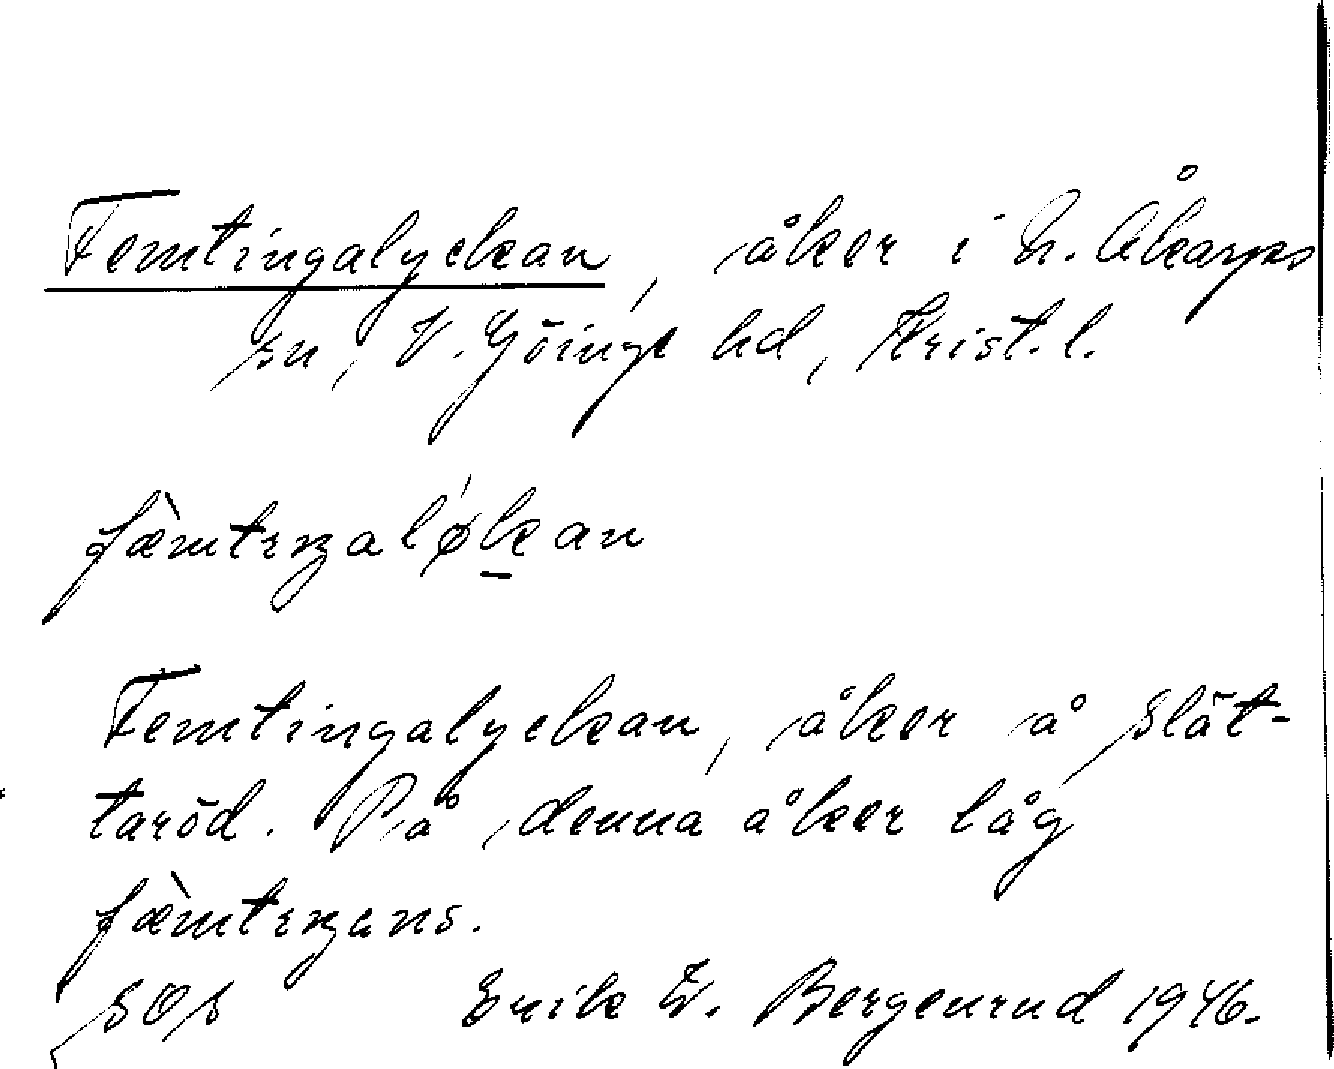 Femtingalyckan, åker i N. Åkarps
sn, V. Göinge hd, Krist. l.
fæ̀mtıŋalǿkan
Femtingalyckan, åker å Slät-
taröd. På denna åker låg
fæ̀mtıŋens.
SOS Erik W. Bergenrud 1946.